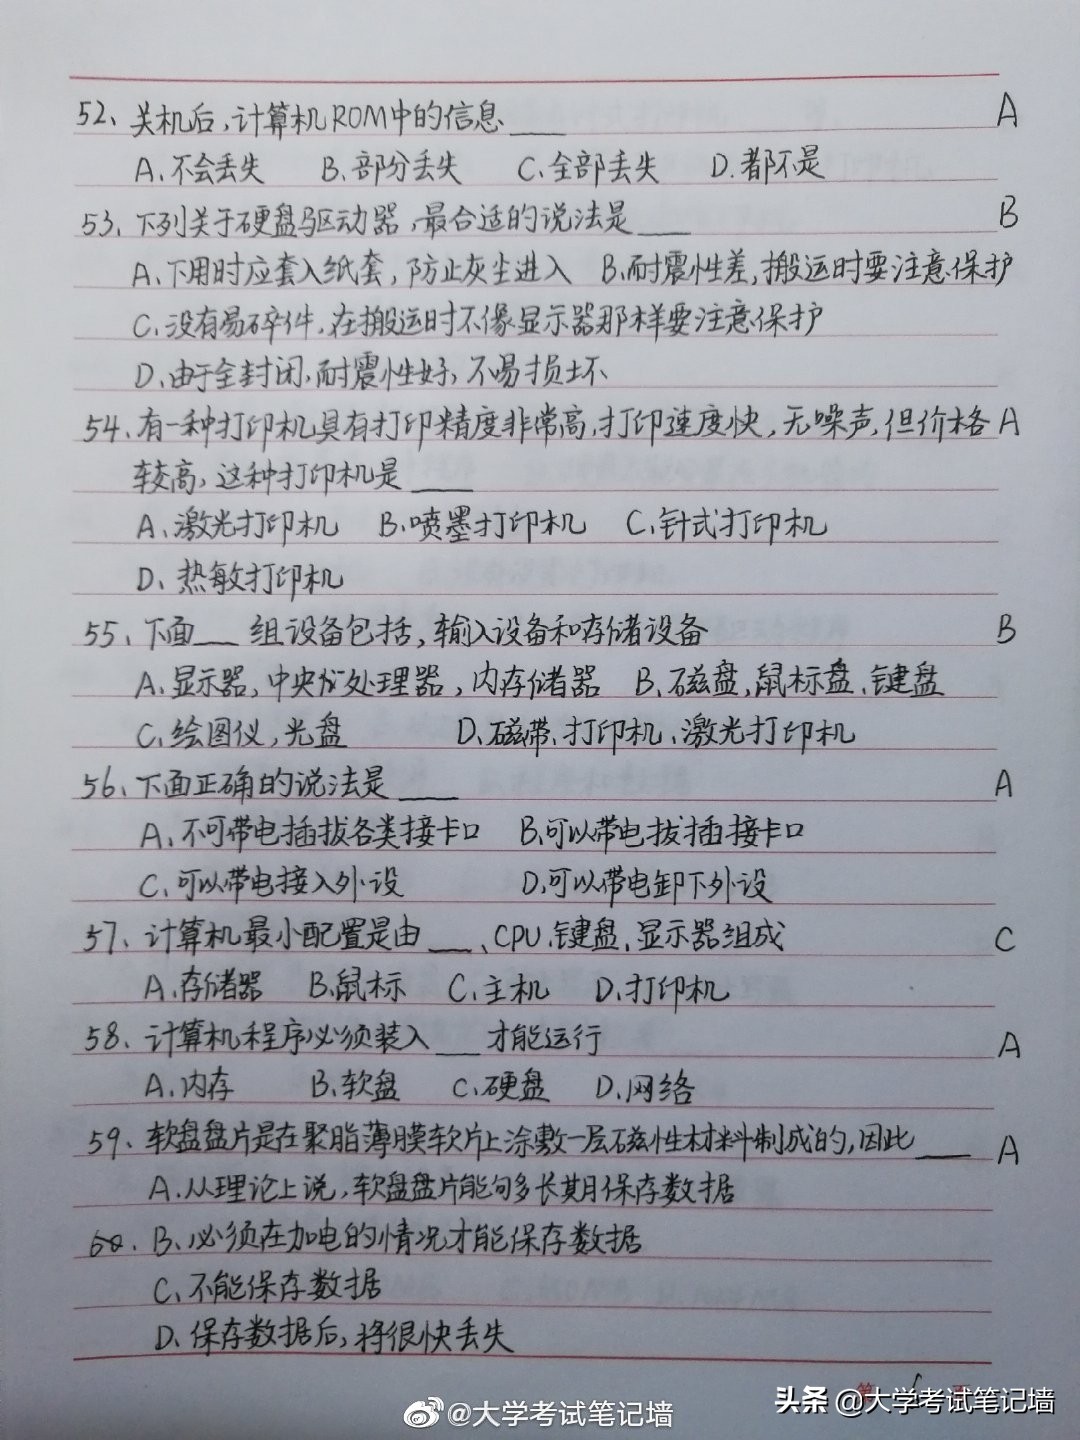 52、关机后,计算机ROM中的信息____ A
A、不会丢失 B、部分丢失 C、全部丢失 D、都不是
53、下列关于硬盘驱动器,最合适的说法是____ B
A、下用时应套入纸套,防止灰尘进入 B、耐震性差,搬运时要注意保护
C、没有易碎件,在搬运时不像显示器那样要注意保护
D、由于全封闭,耐震性好,不易损坏
54、有一种打印机具有打印精度非常高,打印速度快,无噪声,但价格 A
较高,这种打印机是____
A、激光打印机 B、喷墨打印机 C、针式打印机
D、热敏打印机
55、下面___组设备包括,输入设备和存储设备 B
A、显示器,中央处理器,内存储器 B、磁盘,鼠标盘、键盘
C、绘图仪,光盘 D、磁带、打印机、激光打印机
56、下面正确的说法是____ A
A、不可带电插拔各类接卡口 B、可以带电拔插接卡口
C、可以带电接入外设 D、可以带电卸下外设
57、计算机最小配置是由___、CPU、键盘、显示器组成 C
A、存储器 B、鼠标 C、主机 D、打印机
58、计算机程序必须装入___才能运行 A
A、内存 B、软盘 C、硬盘 D、网络
59、软盘盘片是在聚脂薄膜软片上涂敷一层磁性材料制成的,因此____ A
A、从理论上说,软盘盘片能够多长期保存数据
60、B、必须在加电的情况才能保存数据
C、不能保存数据
D、保存数据后,将很快丢失
第 6 页
头条 @大学考试笔记墙
@大学考试笔记墙